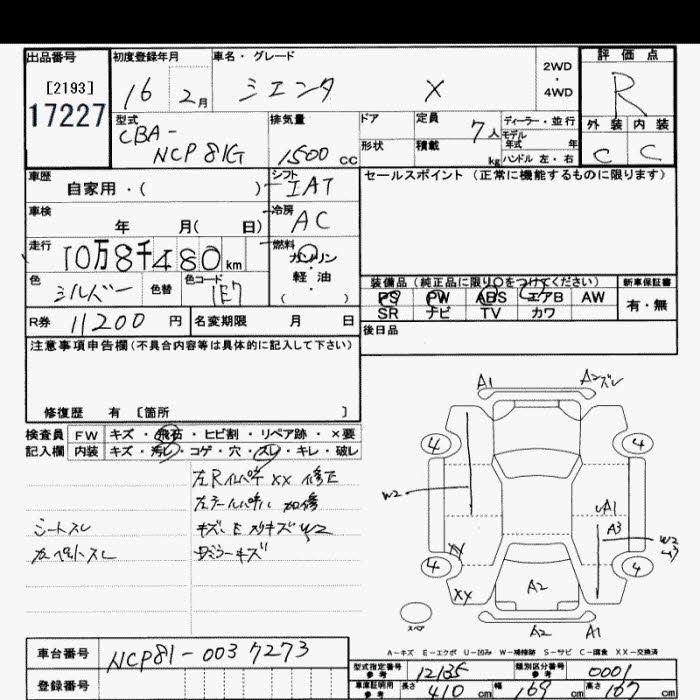 出品番号 初度登録年月 車名・グレード 2WD・4WD 評価点
[2193] 16 2月 シエンタ X R
17227
型式 排気量 ドア 定員 7人 ディーラー・並行 外装 内装
CBA- モデル年式 年
NCP81G 1500 cc 形状 積載 kg ハンドル 左・右 C C
車歴 シフト セールスポイント (正常に機能するものに限ります)
自家用・( ) IAT
車検 冷房
年 月( 日) AC
走行 燃料
10万8千480km ガソリン・軽油
色 色替 色コード ( ) 装備品 (純正品に限り○をつけてください) 新車保証書
シルバー 1E7 PS PW ABS エアB AW 有・無
SR ナビ TV カワ
R券 11200円 名変期限 月 日 後日品
注意事項申告欄(不具合内容等は具体的に記入して下さい)
修復歴 有 [箇所 ]
検査員 FW キズ・飛石・ヒビ割・リペア跡・×要
記入欄 内装 キズ・汚レ・コゲ・穴・スレ・キレ・破レ
左Rインパネ XX 修正
シートスレ
カーペットスレ
A1 A2ズレ
4 4
W2
A1
A3
W2
4 4
XX A2
スペア
A2 A1
A-キズ E-エクボ U-凹み W-補修跡 S-サビ C-腐食 XX-交換済
車台番号 NCP81-0037273
登録番号
型式指定番号 参考 12135 類別区分番号 参考 0001
車庫証明用 参考 長さ 410 cm 幅 169 cm 高さ 167 cm